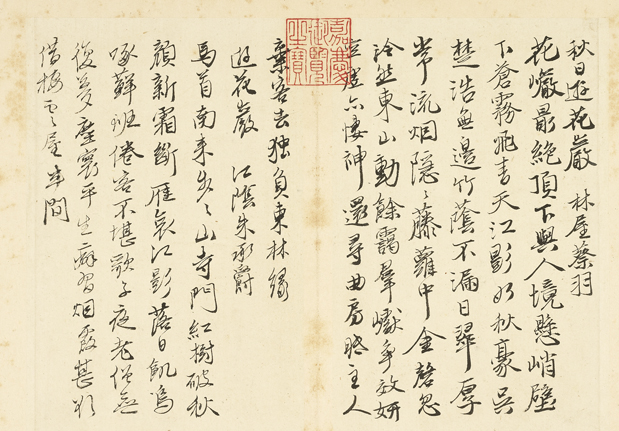 秋日遊花巖 林屋蔡羽
花巖最絕頂下與人境懸峭壁
下蒼霧飛青天江影如秋豪吳
楚浩無邊竹蔭不漏日翠厚
常流烟隱隱藤蘿中金磬忽
泠然東山動餘靄群巘爭效妍
磴六悽神還尋曲房眺主人
棄客去獨負東林緣
遊花巖 江陰朱承爵
馬首南來步步山寺門紅樹破秋
顏新霜斷雁哀江影落日飢烏
啄蘚班倦客不堪歌子夜老僧無
復夢塵寰平生癖習烟霞甚欲
借梅雲屋半間
嘉慶御覽之寶